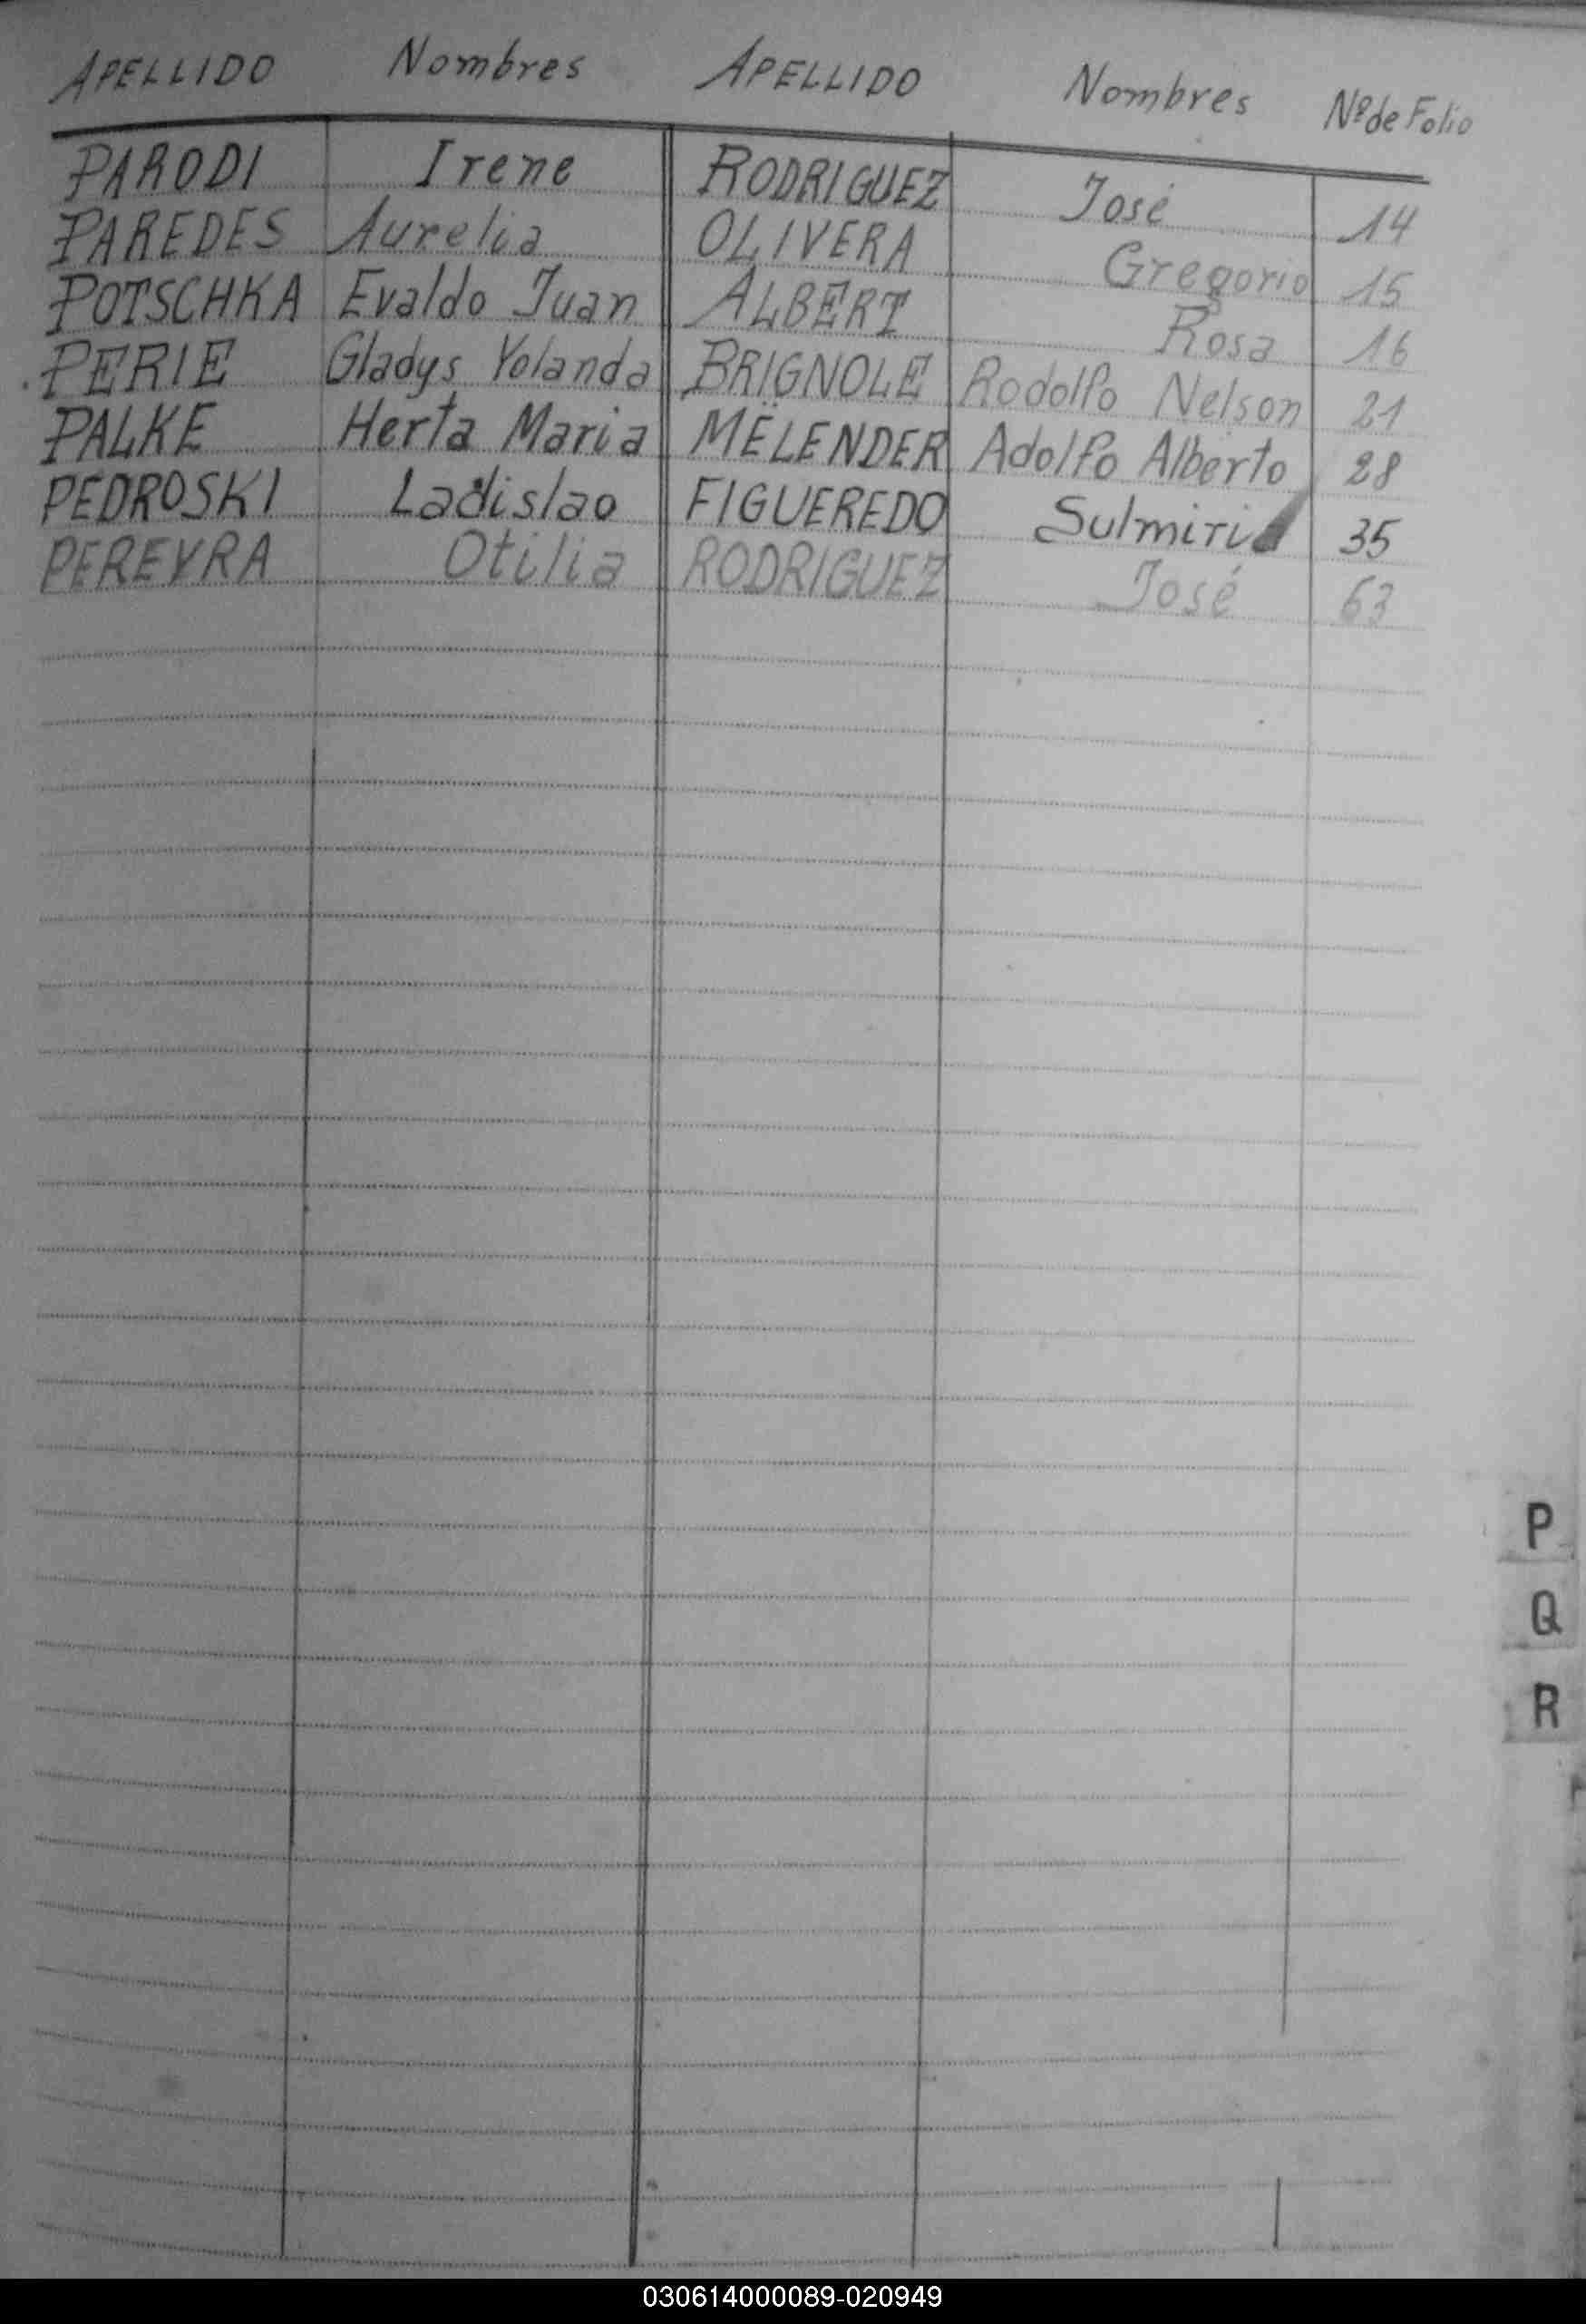 APELLIDO Nombres APELLIDO Nombres Nº de Folio
PARODI Irene RODRIGUEZ José 14
PAREDES Aurelia OLIVERA Gregorio 15
POTSCHKA Evaldo Juan ALBERT Rosa 16
PERIE Gladys Yolanda BRIGNOLE Rodolfo Nelson 21
PALKE Herta Maria MËLENDER Adolfo Alberto 28
PEDROSKI Ladislao FIGUEREDO 35
PEREYRA Otilia RODRIGUEZ José 63
P
Q
R
030614000089-020949